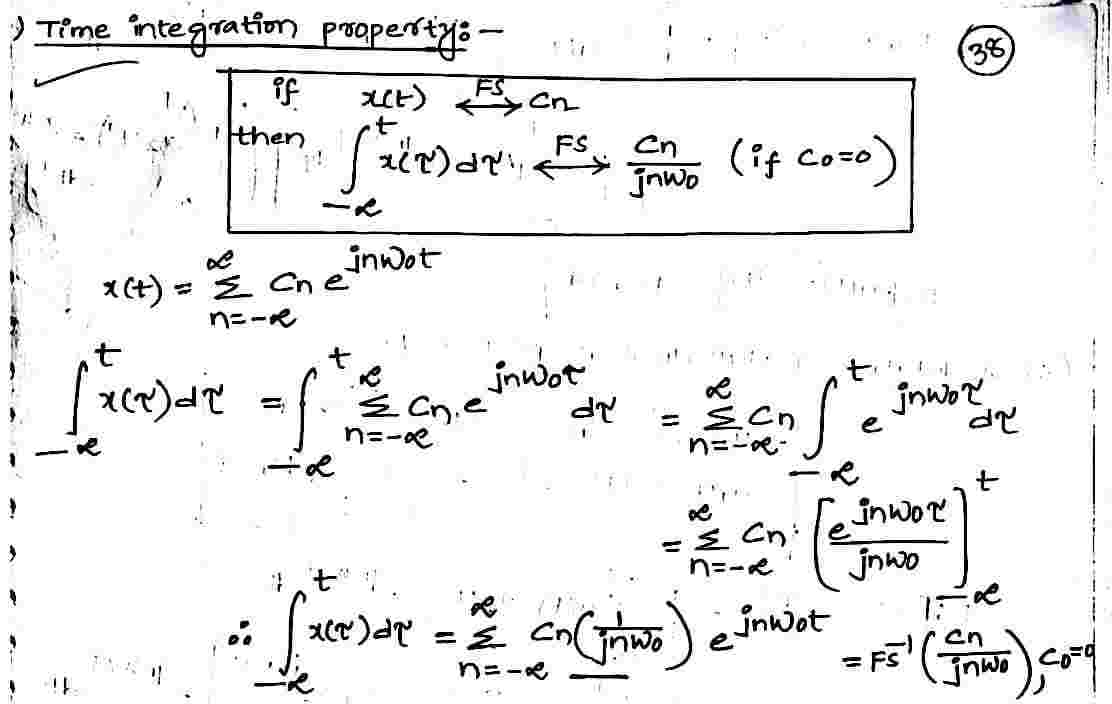 ) Time integration property:-
(38)
if x(t) <-FS-> Cn
then ∫_{-∞}^{t} x(τ)dτ <-FS-> Cn/jnω0 (if C0=0)
x(t) = Σ_{n=-∞}^{∞} Cn e^{jnω0t}
∫_{-∞}^{t} x(τ)dτ = ∫_{-∞}^{t} Σ_{n=-∞}^{∞} Cn.e^{jnω0τ} dτ = Σ_{n=-∞}^{∞} Cn ∫_{-∞}^{t} e^{jnω0τ} dτ
= Σ_{n=-∞}^{∞} Cn [e^{jnω0τ}/jnω0]_{-∞}^{t}
∴ ∫_{-∞}^{t} x(τ)dτ = Σ_{n=-∞}^{∞} Cn(1/jnω0) e^{jnω0t} = FS^{-1}(Cn/jnω0), C0=0